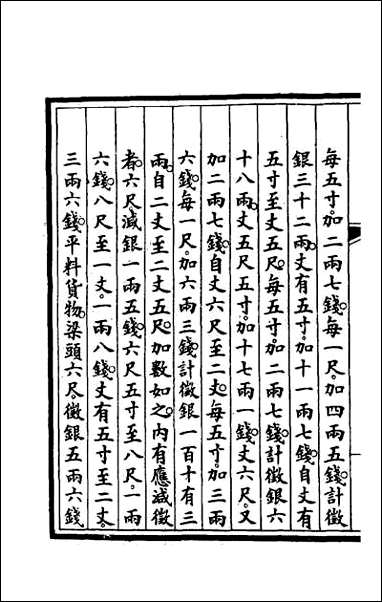 每五寸。加二兩七錢。每一尺。加四兩五錢。計徵
銀三十二兩。丈有五寸。加十一兩七錢。自丈有
五寸至丈五尺。每五寸。加二兩七錢。計徵銀六
十八兩。丈五尺五寸。加十七兩一錢。丈六尺。又
加二兩七錢。自丈六尺至二丈。每五寸。加三兩
六錢。每一尺。加六兩三錢。計徵銀一百十有三
兩。自二丈至二丈五尺。加數如之。內有應減徵
者。六尺。減銀一兩五錢。六尺五寸至八尺。一兩
六錢。八尺至一丈。一兩八錢。丈有五寸至二丈。
三兩六錢。平料貨物。梁頭六尺。徵銀五兩六錢